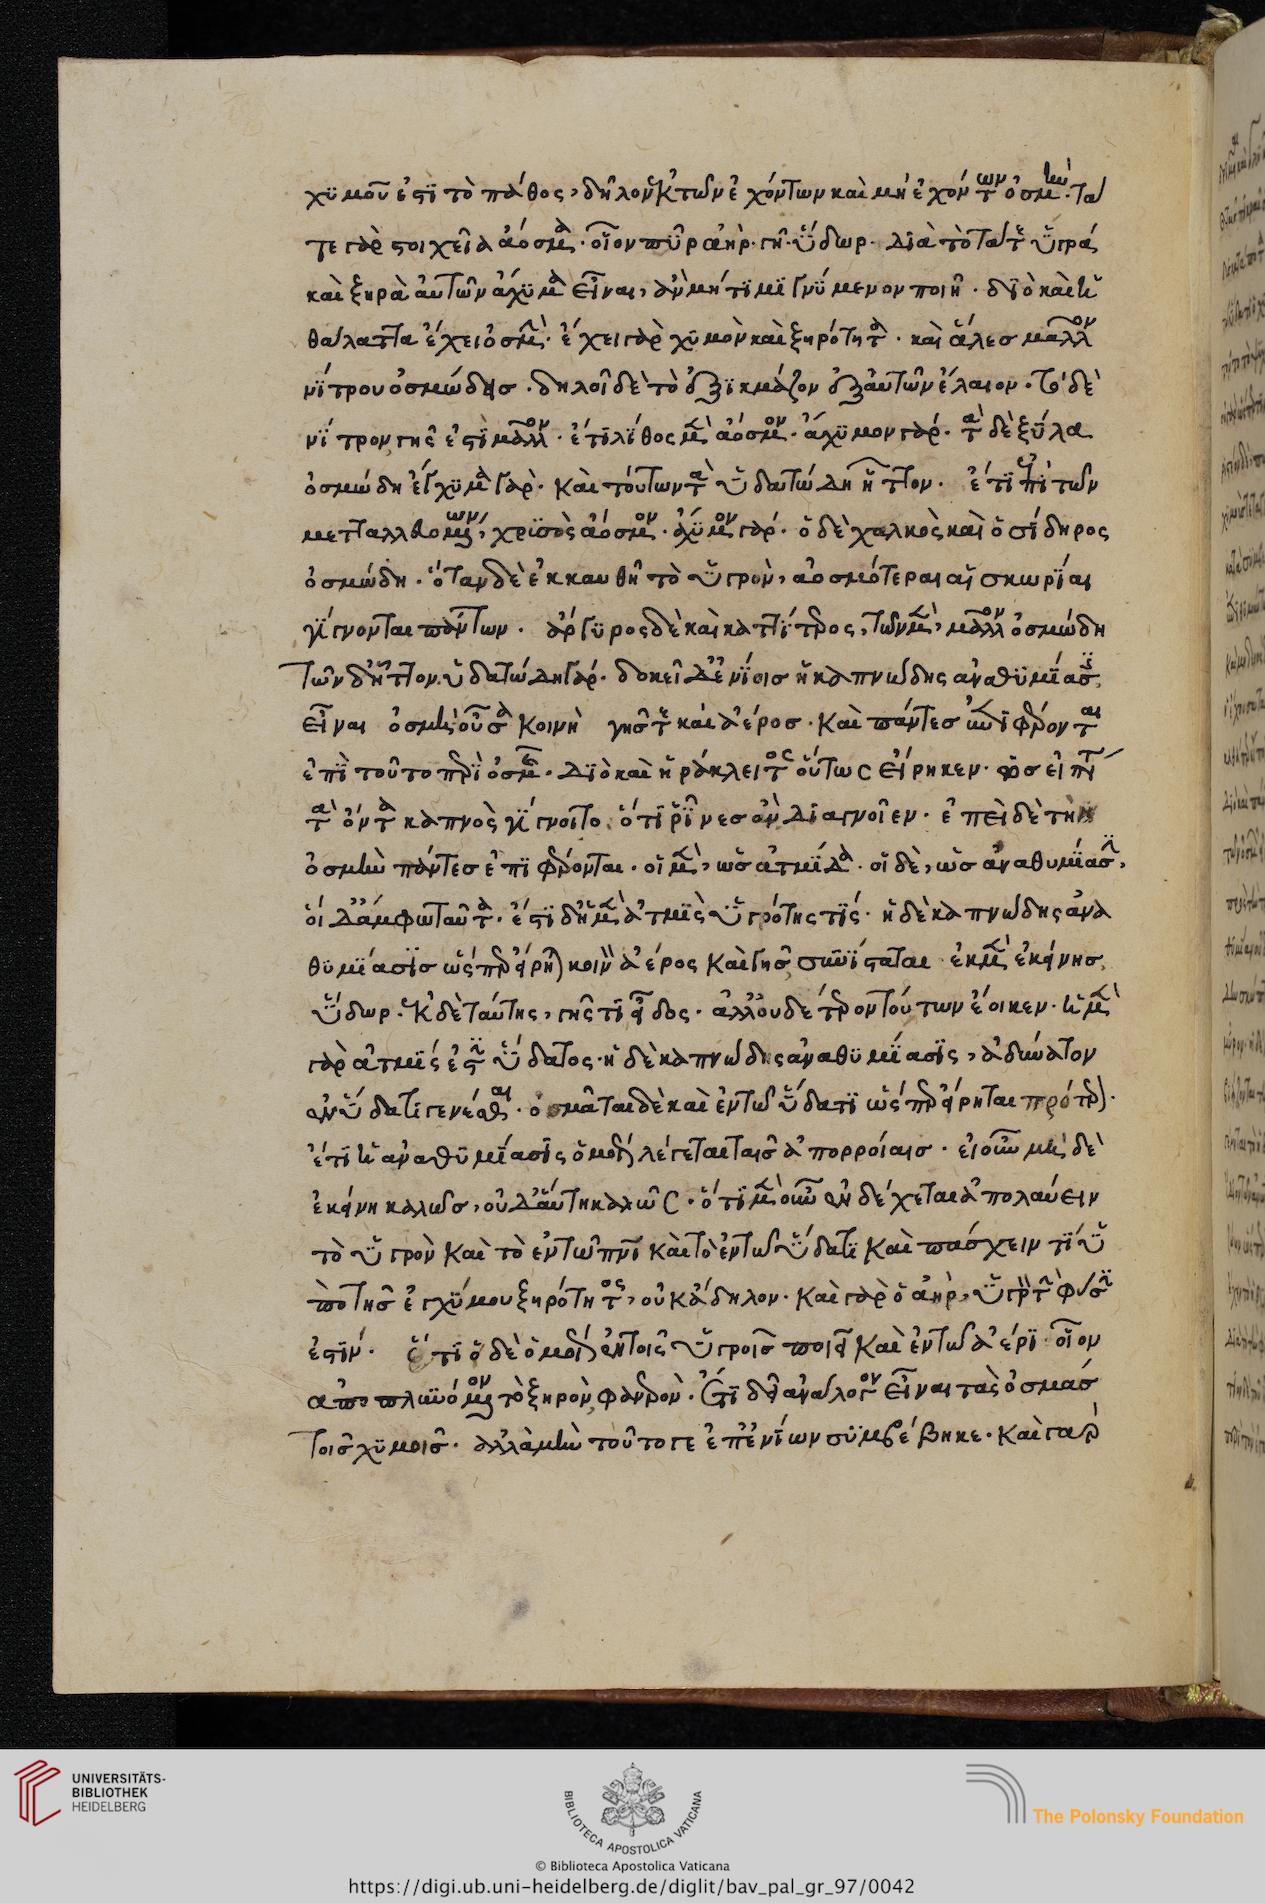 χϋμοῦ ἐστϊ τὸ πάθος, δῆλον ἐκ των ἐχόντων και μὴ ἐχόντων ὀσμήν. τά
τε γὰρ στοιχεῖα ἄοσμα. οἷον πῦρ ἀὴρ. γῆ. ὕδωρ. διὰ τὸ τάτε ὑγρά
και ξηρὰ αὐτῶν ἄχϋμα εἶναι, ἂν μή τι μϊγνϋμενον ποιῆ. διὸ και ἡ
θάλαττα ἔχει ὀσμήν. ἔχει γὰρ χϋμὸν και ξηρότητα. και ἅλες μᾶλλον
νίτρου ὀσμώδεις. δηλοῖ δὲ τὸ ἐξϊκμάζον ἐξ αὐτῶν ἔλαιον. τὸ δὲ
νίτρον γῆς ἐστϊ μᾶλλον. ἔτϊ λίθος μὲν ἄοσμον. ἄχϋμον γάρ. τὰ δὲ ξύλα
ὀσμώδη ἔγχϋμα γὰρ. και τούτων τὰ ὑδατώδη ἧττον. ἔτϊ ἐπὶ των
μετταλλευομένων, χρϋσὸς ἄοσμον. ἄχϋμον γάρ. ὁ δὲ χαλκὸς και ὁ σίδηρος
ὀσμώδη. ὅταν δὲ ἐκκαυθῆ τὸ ὑγρὸν, ἀοσμότεραι αἱ σκωρίαι
γίγνονται πάντων. ἄργϋρος δὲ και καττίτερος, των μὲν, μᾶλλον ὀσμώδη
τῶν δ' ἧττον. ὑδατώδη γάρ. δοκεῖ δ' ἐνίοισ ἡ καπνώδης ἀναθϋμίασις
εἶναι ὀσμὴ οὖσα κοινὴ γῆς τε και ἀέρος. και πάντες ἐπιφέρονται
ἐπὶ τοῦτο περὶ ὀσμῆς. διὸ και ἡράκλειτος οὕτως εἴρηκεν. ὡς εἰ πάντα
τὰ ὄντα καπνὸς γίγνοιτο. ὅτι ῥῖνες ἂν διαγνοῖεν. ἐπὶ δὲ τὴν
ὀσμὴν πάντες ἐπϊφέρονται. οἱ μὲν, ὡς ἀτμίδα. οἱ δὲ, ὡς ἀναθυμίασιν,
οἱ δ' ἄμφω ταῦτα. ἔστϊ δ' ἡ μὲν ἀτμὶς ὑγρότης τϊς. ἡ δὲ καπνώδης ἀνα
θϋμίασϊς ὥσπερ εἴρηται κοινὴ ἀέρος και γῆς συνίσταται ἐκ μὲν ἐκείνης
ὕδωρ. ἐκ δὲ ταύτης, γῆς τϊ εἶδος. ἀλλ' οὐδέτερον τούτων ἔοικεν. ἡ μὲν
γὰρ ἀτμίς ἐστιν ὕδατος. ἡ δὲ καπνώδης ἀναθϋμίασϊς, ἀδύνατον
ἐν ὕδατι γενέσθαι. ὀσμᾶται δὲ και ἐν τω ὕδατι ὥσπερ εἴρηται πρότερον.
ἔτϊ ἡ ἀναθϋμίασϊς ὁμοίως λέγεται ταῖς ἀπορροίαις. εἰ οὖν μὴ δὲ
ἐκείνη καλως, οὐ δ' αὕτη καλῶς. ὅτϊ μὲν οὖν ἐνδέχεται ἀπολαύειν
τὸ ὑγρὸν και τὸ ἐν τῶ πνι και τὸ ἐν τω ὕδατι και πάσχειν τϊ ὑ
πὸ τῆς ἐγχύμου ξηρότητος, οὐκ ἄδηλον. και γὰρ ὁ ἀὴρ, ὑγρὸν τὴν φύσιν
ἐστίν. ἔτϊ ὁ δὲ ὁμοίως ἐν τοῖς ὑγροῖς ποιεῖ και ἐν τω ἀέρϊ οἷον
ἀποπλϋνόμενον τὸ ξηρὸν, φανερὸν. ὅτϊ δεῖ ἀνάλογον εἶναι τὰς ὀσμάς
τοῖς χϋμοῖς. ἀλλὰ μὴν τοῦτο γε ἐπ' ἐνίων σϋμβέβηκε. και γὰρ
UNIVERSITÄTS-
BIBLIOTHEK
HEIDELBERG
BIBLIOTECA APOSTOLICA VATICANA
The Polonsky Foundation
© Biblioteca Apostolica Vaticana
https://digi.ub.uni-heidelberg.de/diglit/bav_pal_gr_97/0042